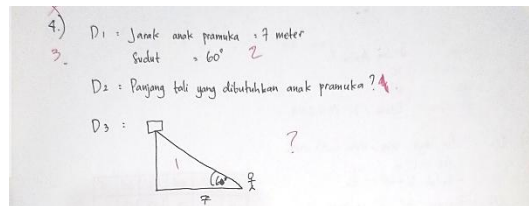 4.) D1 : Jarak anak pramuka = 7 meter
3. Sudut = 60° 2
D2 : Panjang tali yang dibutuhkan anak pramuka ? 1
D3 :
?
1
60°
7